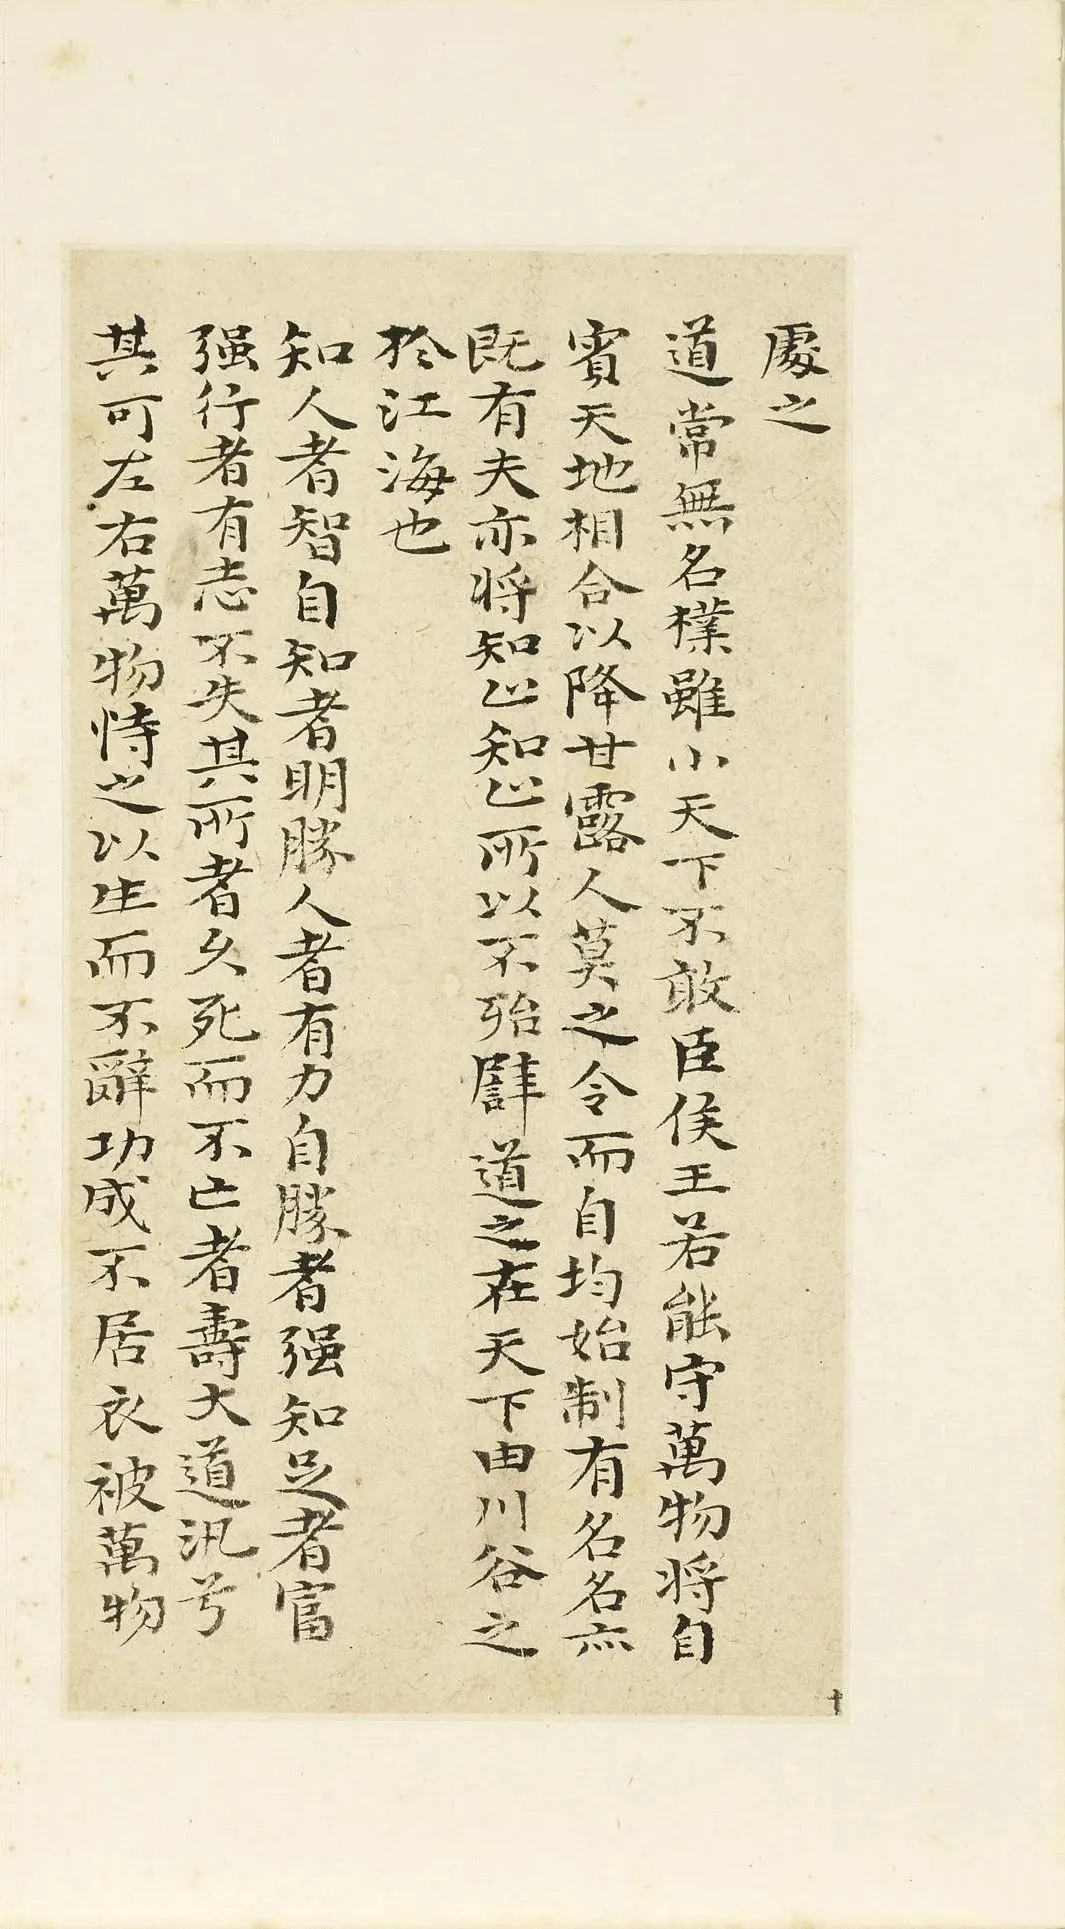 處之
道常無名樸雖小天下不敢臣侯王若能守萬物將自
賓天地相合以降甘露人莫之令而自均始制有名名亦
既有夫亦將知止知止所以不殆譬道之在天下由川谷之
於江海也
知人者智自知者明勝人者有力自勝者强知足者富
强行者有志不失其所者久死而不亡者壽大道汎兮
其可左右萬物恃之以生而不辭功成不居衣被萬物
十